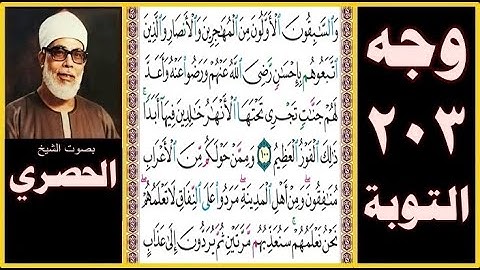 وجه
٢٠٣
التوبة
وَالسَّٰبِقُونَ الْأَوَّلُونَ مِنَ الْمُهَٰجِرِينَ وَالْأَنصَارِ وَالَّذِينَ
اتَّبَعُوهُم بِإِحْسَٰنٍ رَّضِيَ اللَّهُ عَنْهُمْ وَرَضُوا عَنْهُ وَأَعَدَّ
لَهُمْ جَنَّٰتٍ تَجْرِي تَحْتَهَا الْأَنْهَٰرُ خَٰلِدِينَ فِيهَا أَبَدًا
ذَٰلِكَ الْفَوْزُ الْعَظِيمُ ١٠٠ وَمِمَّنْ حَوْلَكُم مِّنَ الْأَعْرَابِ
مُنَٰفِقُونَ وَمِنْ أَهْلِ الْمَدِينَةِ مَرَدُوا عَلَى النِّفَاقِ لَا تَعْلَمُهُمْ
نَحْنُ نَعْلَمُهُمْ سَنُعَذِّبُهُم مَّرَّتَيْنِ ثُمَّ يُرَدُّونَ إِلَىٰ عَذَابٍ
بصوت الشيخ
الحصري